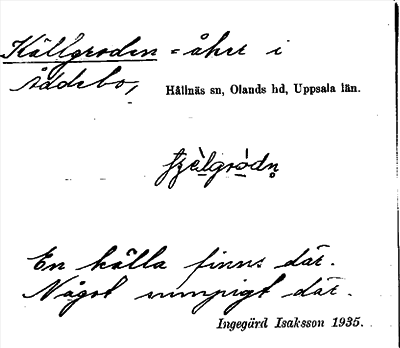 Källgroden = åker i
Åddebo,
Hållnäs sn, Olands hd, Uppsala län.
En källa finns där.
Något sumpigt där.
Ingegärd Isaksson 1935.